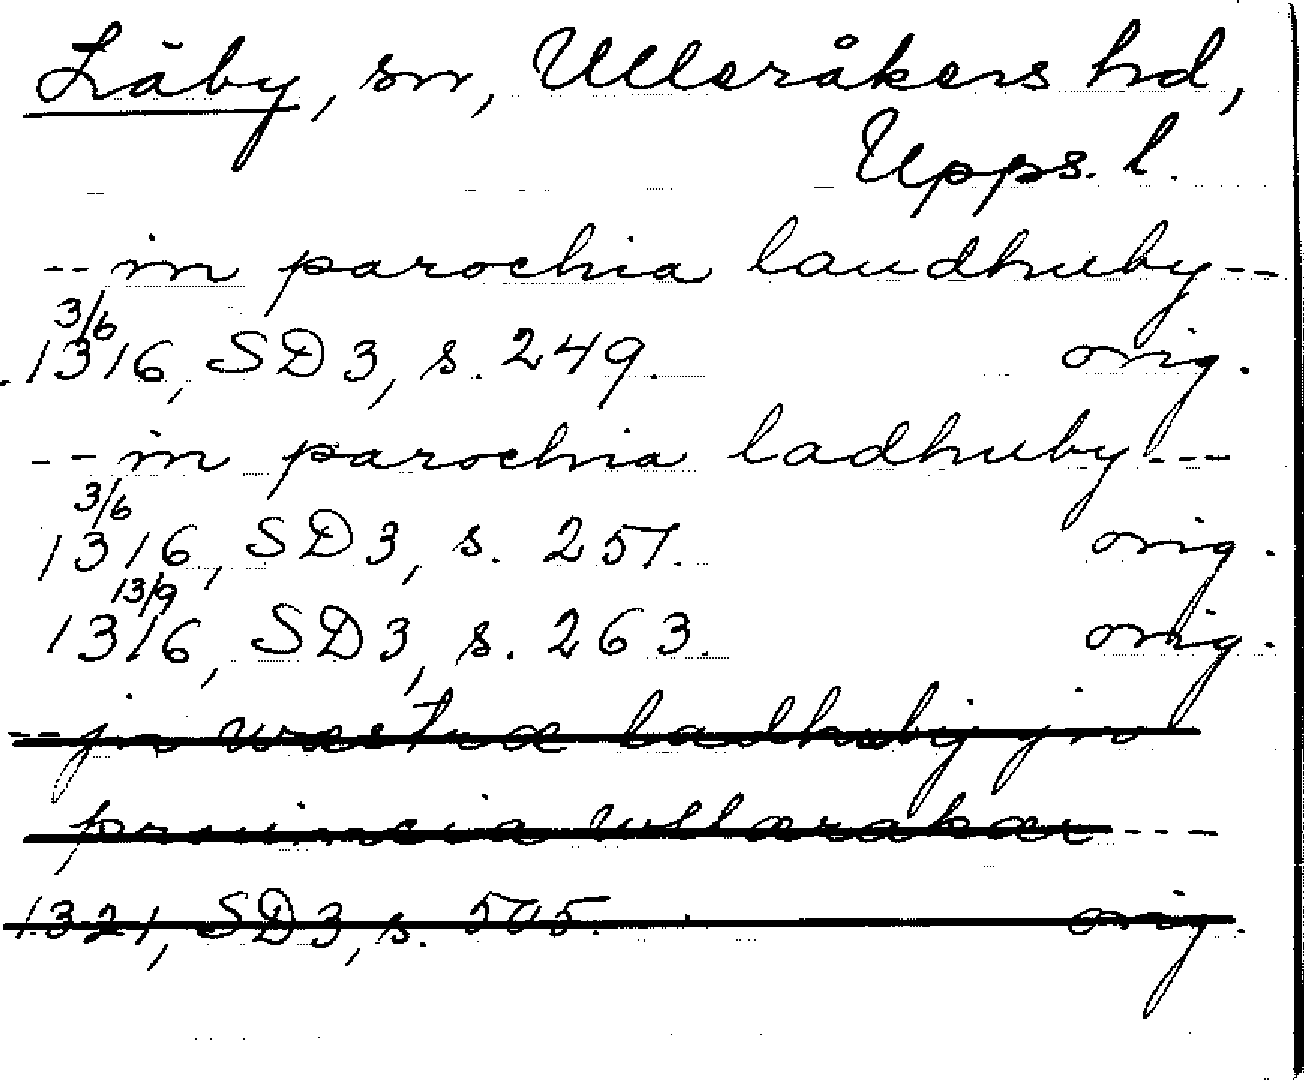 Läby, sn, Ulleråkers hd,
Upps. l.
-- in parochia laudhuby --
3/6
1316, SD 3, s. 249. orig.
-- in parochia ladhuby ---
3/6
1316, SD 3, s. 251. orig.
13/9
1316, SD 3, s. 263. orig.
-- jn wæstræ ladhuby jn
prouincia vllærakær ---
1321, SD 3, s. 505. orig.